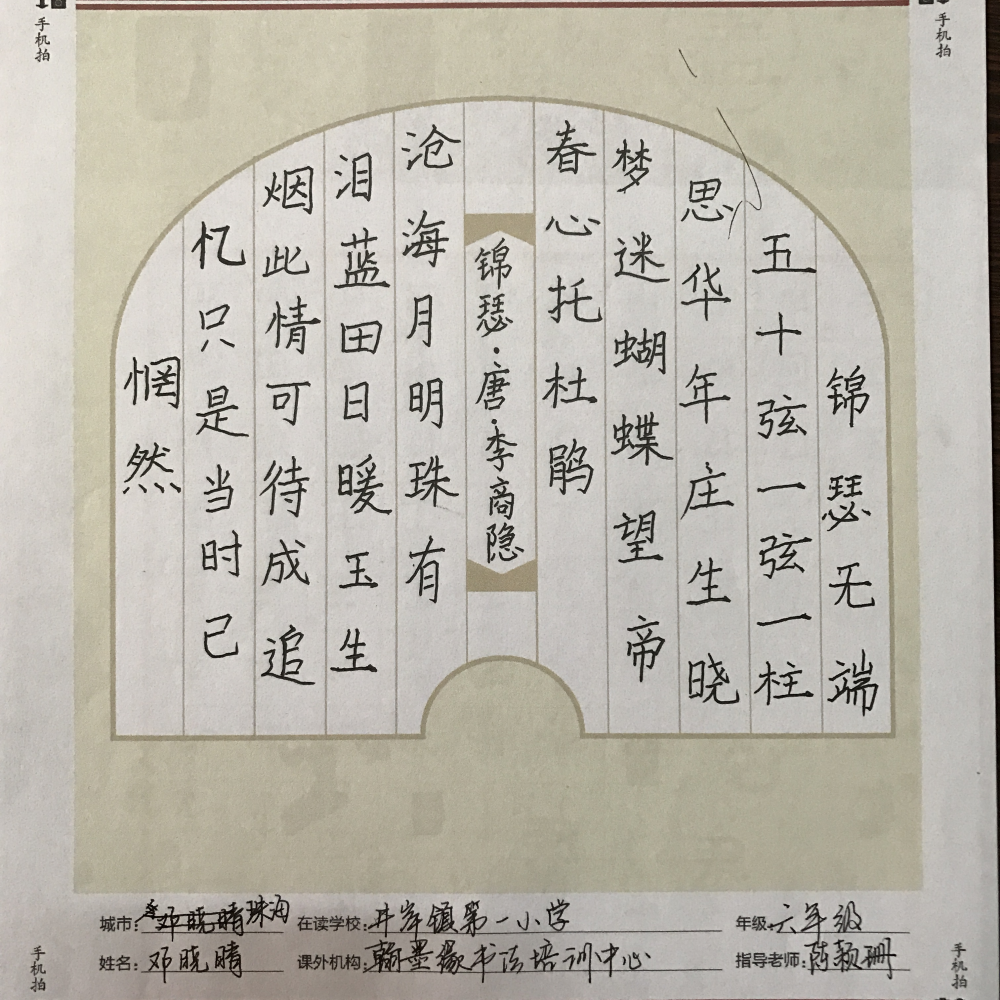 手机拍
手机拍
锦瑟无端
五十弦一弦一柱
思华年庄生晓
梦迷蝴蝶望帝
春心托杜鹃
锦瑟·唐·李商隐
沧海月明珠有
泪蓝田日暖玉生
烟此情可待成追
忆只是当时已
惘然
城市：珠海 在读学校：井岸镇第一小学 年级：六年级
姓名：邓晓晴 课外机构：翰墨缘书法培训中心 指导老师：陈颖珊
手机拍
手机拍